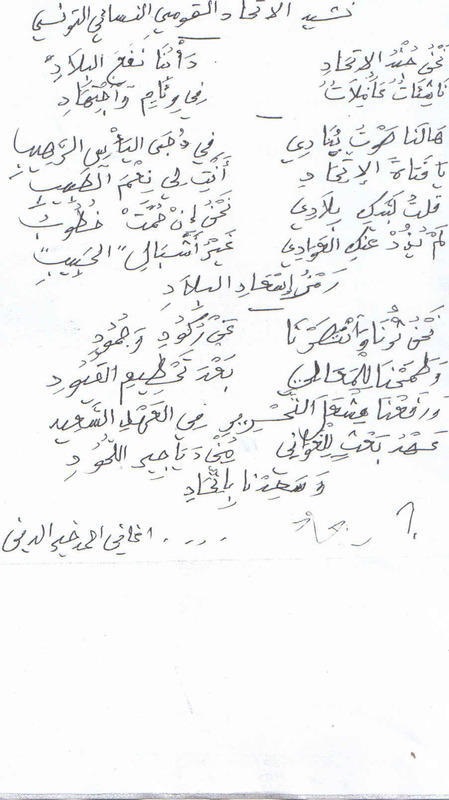 نشيد الاتحاد القومي النسائي التونسي
نَحْنُ جُنْدُ الإتِحَادِ دَأْبُنَا نَفْعُ البِلَادِ
نَاشِئَاتٌ عَامِلَاتٌ فِي وِئَامٍ وَاجْتِهَادِ
هَالَنَا صَوْتٌ يُنَادِي فِي دُجَى اليَأْسِ الرَّهِيبِ
يَا فَتَاةَ الإتِحَادِ أَنْتِ لِي نِعْمَ الطَّبِيبُ
قلتُ لَبَّيْكِ بِلَادِي نَحْنُ إنْ حُمَّتْ خُطُوبُ
لَمْ يَذُدْ عَنْكِ العَوَادِي غَيْرُ أَشْبَالِ "الحَبِيبِ"
رَمْزُ إسْعَادِ البِلَادِ
نَحْنُ ثُرْنَا وَانْتَصَرْنَا عَنْ رُكُودٍ وَجُمُودِ
وَطَمَحْنَا لِلْمَعَالِي بَعْدَ تَحْطِيمِ القُيُودِ
وَرَفَعْنَا مِشْعَلَ التَّحْرِيرِ فِي العَهْدِ السَّعِيدِ
عَهْدُ بَعْثٍ لِلْغَوَانِي مِنْ دَيَاجِيرِ اللُّحُودِ
وَسَعِدْنَا بِاتِّحَادِ
..... اغاني احمد خير الدين